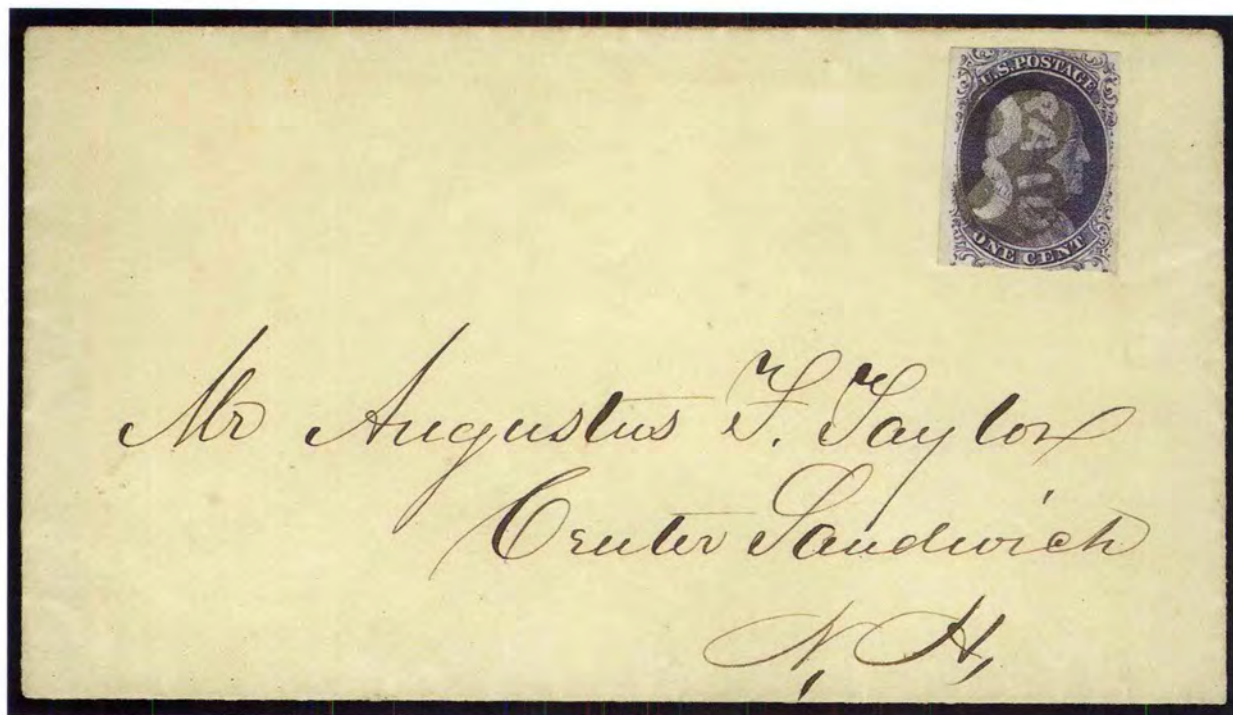 U.S. POSTAGE
PAID
ONE CENT
Mr Augustus F. Taylor
Center Sandwich
N. H,